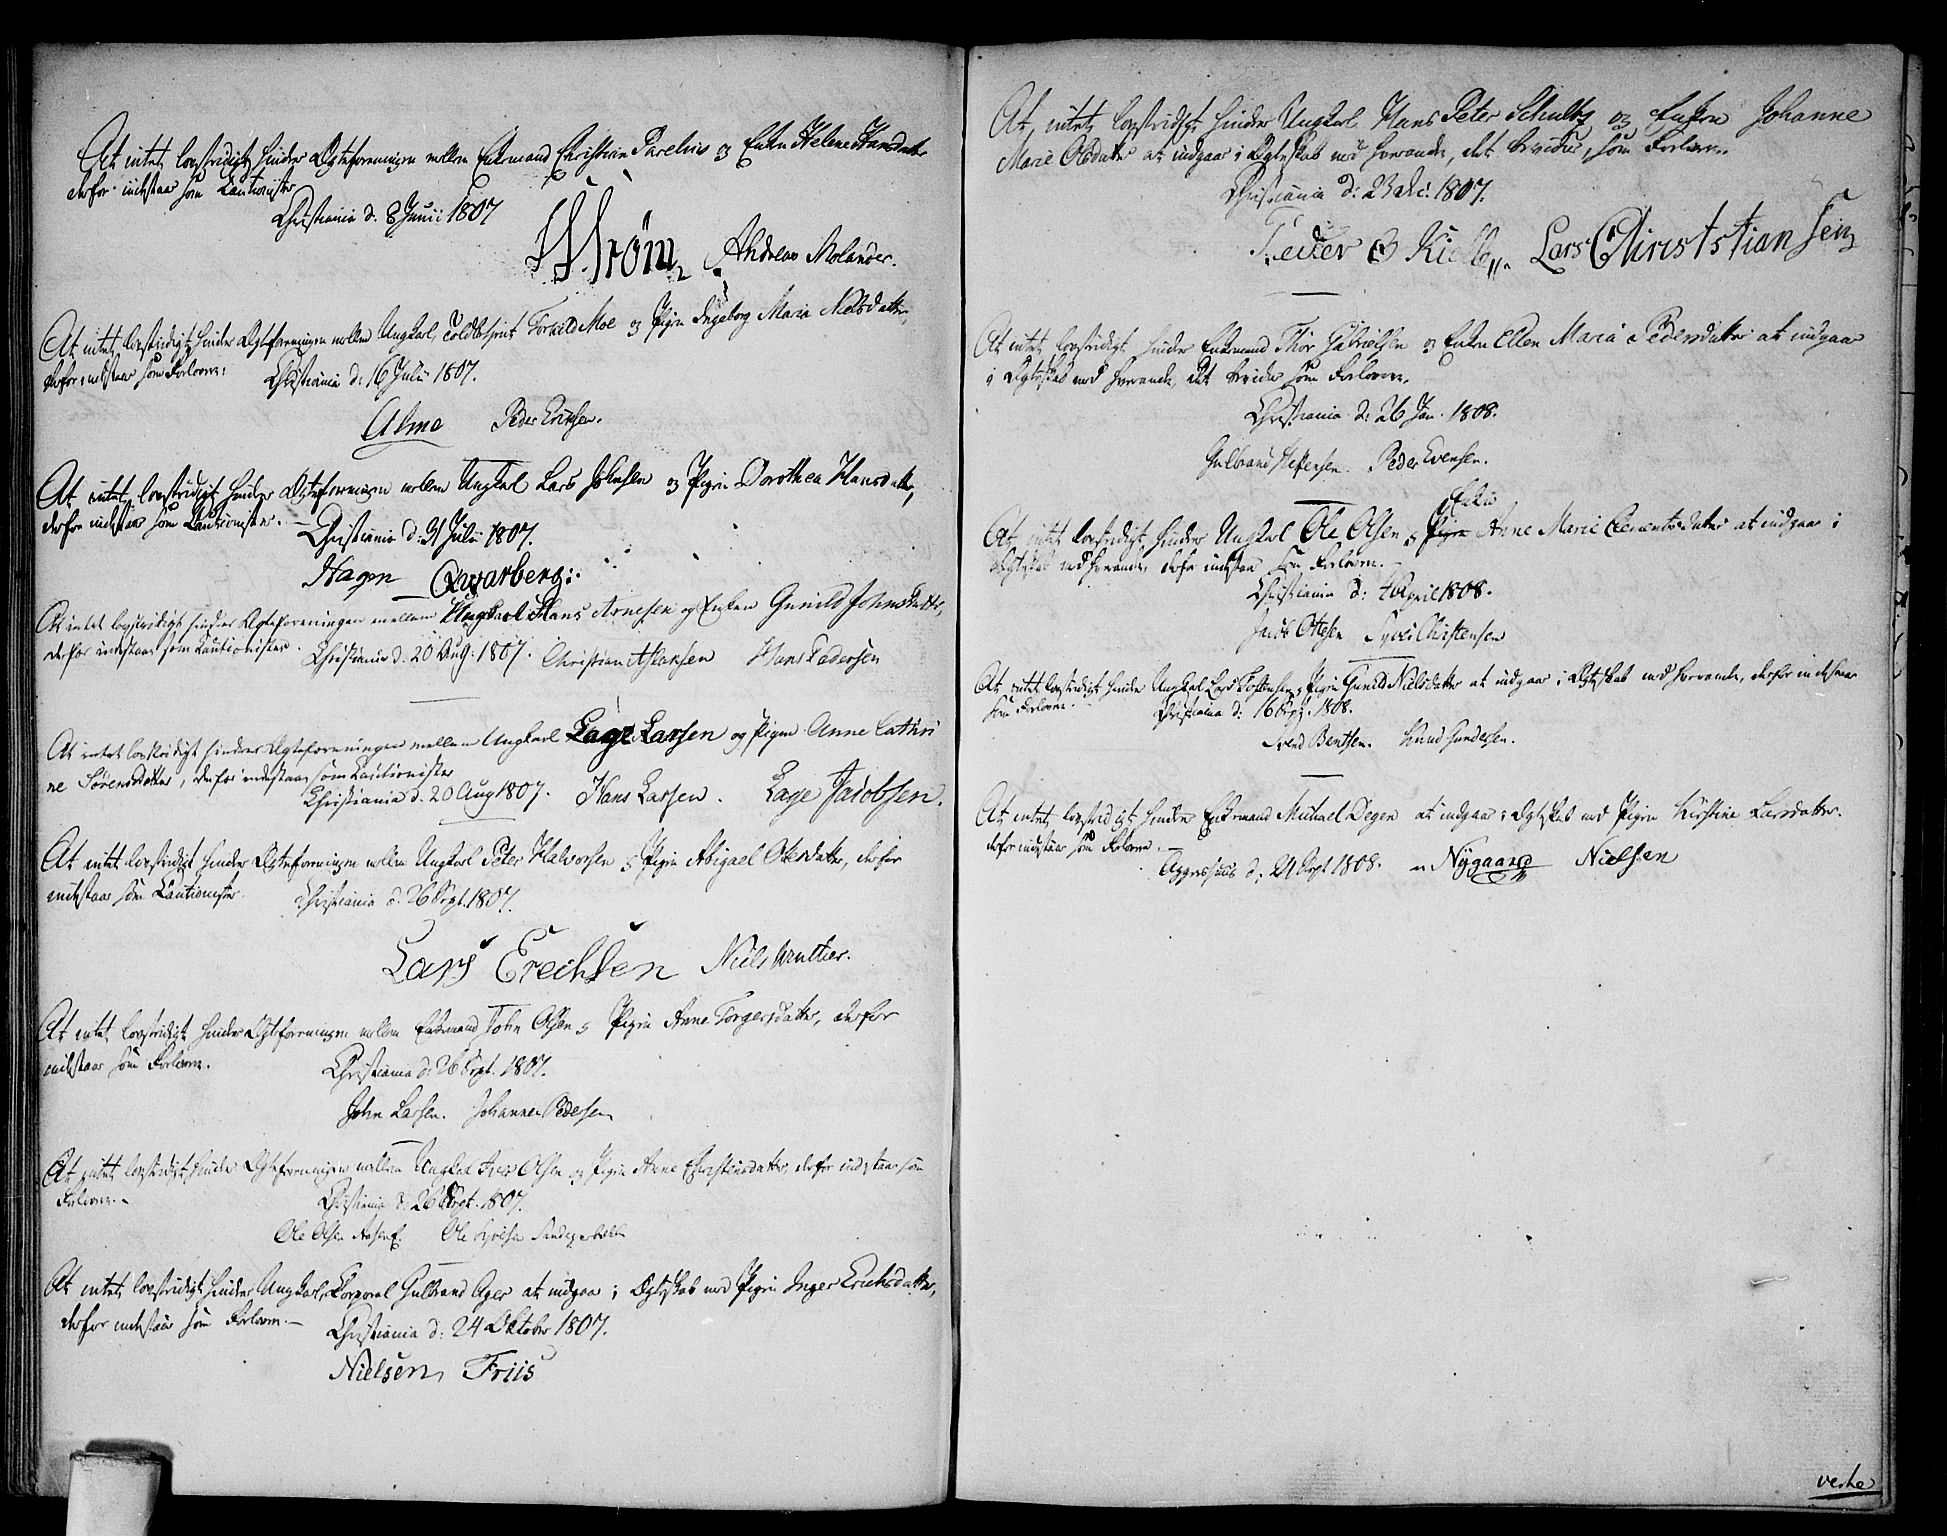 At intet lovstridigt hindrer Ægteforeningen mellem Enkemand Christian Parelius og Enken Helene Hansdatter
derfor indestaar som Cautionister
Christiania d. 8 Junii 1807
Andreas Molander.
At intet lovstridigt hindrer Ægteforeningen mellem Ungkarl, Toldbetjent Torkild Moe og Pigen Ingeborg Maria Nielsdatter,
derfor indestaar som Forlovere:
Christiania d: 16 Julii 1807.
Alme Peder Eriksen.
At intet lovstridigt hindrer Ægteforeningen mellem Ungkarl Lars Johnsen og Pigen Dorothea Hansdatter,
derfor indestaar som Cautionister. —
Christiania d: 31 Julii 1807.
Hagen Qvarberg:
At intet lovstridigt hindrer Ægteforeningen mellem Ungkarl Hans Arnesen og Enken Gunild Johnsdatter,
derfor indestaar som Cautionister.
Christiania d. 20 Aug. 1807. Christian Aslaksen Hans Pedersen
At intet lovstridigt hindrer Ægteforeningen mellem Ungkarl Lage Larsen og Pigen Anne Cathri
ne Sørensdatter, derfor indestaar som Cautionister
Christiania d. 20 Aug 1807. Hans Larsen. Lage Jacobsen.
At intet lovstridigt hindrer Ægteforeningen mellem Ungkarl Peter Halvorsen og Pigen Abigael Olesdatter, derfor
indestaar som Cautionister.
Christiania d. 26 Sept. 1807.
Lars Erechsen Niels Winther.
At intet lovstridigt hindrer Ægteforeningen mellem Enkemand John Olsen og Pigen Anne Torgersdatter, derfor
indestaar som Forlovere.
Christiania d: 26 Sept. 1807.
John Larsen. Johannes Pedersen
At intet lovstridigt hindrer Ægteforeningen mellem Ungkarl Iver Olsen og Pigen Anne Christensdatter, derfor indestaar som
Forlovere. -
Christiania d. 26 Sept. 1807.
Ole Olsen
At intet lovstridigt hindrer Ungkarl, Corporal Gulbrand Ager at indgaae i Ægteskab med Pigen Inger Erichsdatter,
derfor indestaar som Forlovere. —
Christiania d: 24 Oktober 1807.
Nielsen, Friis
At intet lovstridigt hindrer Ungkarl Hans Peter Schultz og Enken Johanne
Marie Olsdatter at indgaae i Ægteskab med hverandre, det bevidner som Forlovere
Christiania d: 23 Dec: 1807.
Peder O Kield Lars Christstian Sen
At intet lovstridigt hindrer Enkemand Thor Gabrielsen og Enken Ellen Maria Pedersdatter at indgaae
i Ægteskab med hverandre, det bevidner som Forlovere.
Christiania d: 26 Jan. 1808.
Gulbrand Steffensen. Peder Evensen.
Enken
At intet lovstridigt hindrer Ungkarl Ole Olsen og Pigen Anne Marie Clementsdatter at indgaae i
Ægteskab med hverandre, derfor indestaae som Forlovere.
Christiania d: 4 April 1808.
Jacob Ottesen Syver Christensen
At intet lovstridigt hindrer Ungkarl Lars Torstensen og Pigen Gunild Nielsdatter at indgaae i Ægteskab med hverandre, derfor indestaar
som Forlovere.
Christiania d: 16 Sept. 1808.
Svend Bentsen. Knud Gundersen.
At intet lovstridigt hindrer Enkemand Michael Degen at indgaae i Ægteskab med Pigen Kirstine Larsdatter.
derfor indestaar som Forlovere. —
Aggershuus d: 21 Sept 1808. Nygaard Nielsen
verte